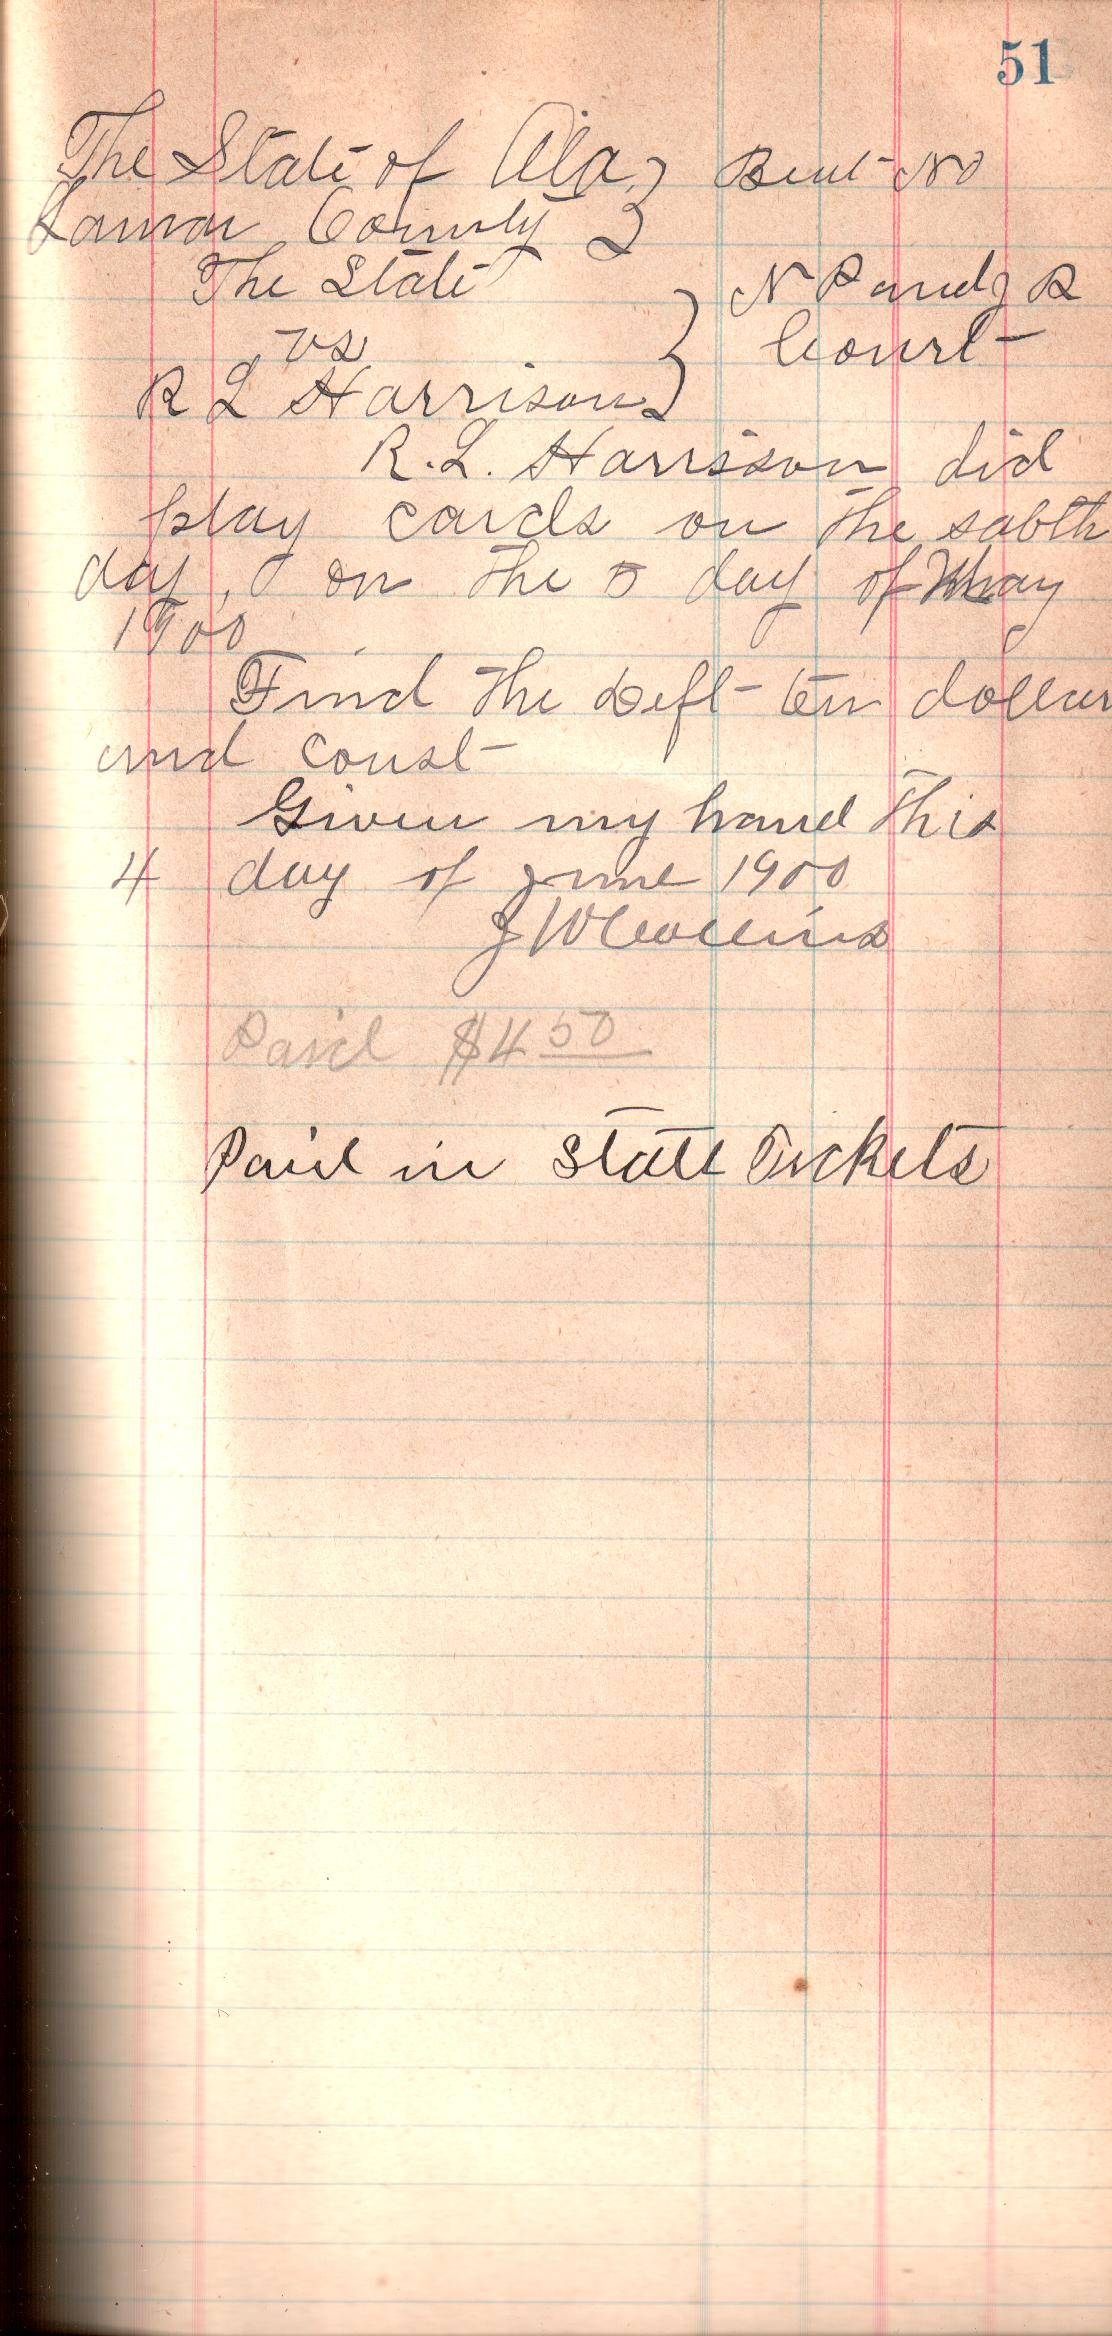 51
The State of Ala } Beat No
Lamar County }
The State } N P and J P
vs } Court
R L Harrison }
R. L. Harrison did
play cards on the sabth
day, on the 5 day of May
1900
Find the Deft ten dollar
and coust
Given my hand this
4 day of June 1900
J W Collins
Paid $4 50
Paid in State Tickets